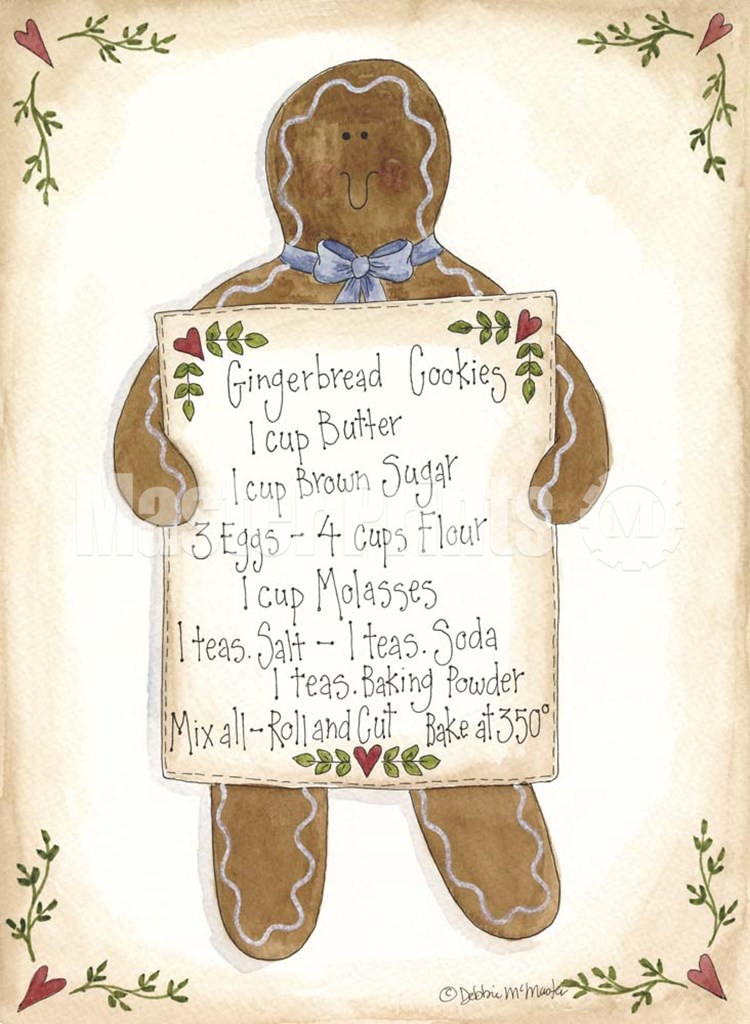 Gingerbread Cookies
1 cup Butter
1 cup Brown Sugar
3 Eggs - 4 cups Flour
1 cup Molasses
1 teas. Salt - 1 teas. Soda
1 teas. Baking Powder
Mix all - Roll and Cut Bake at 350°
MasterPrints M
© Debbie McMaster